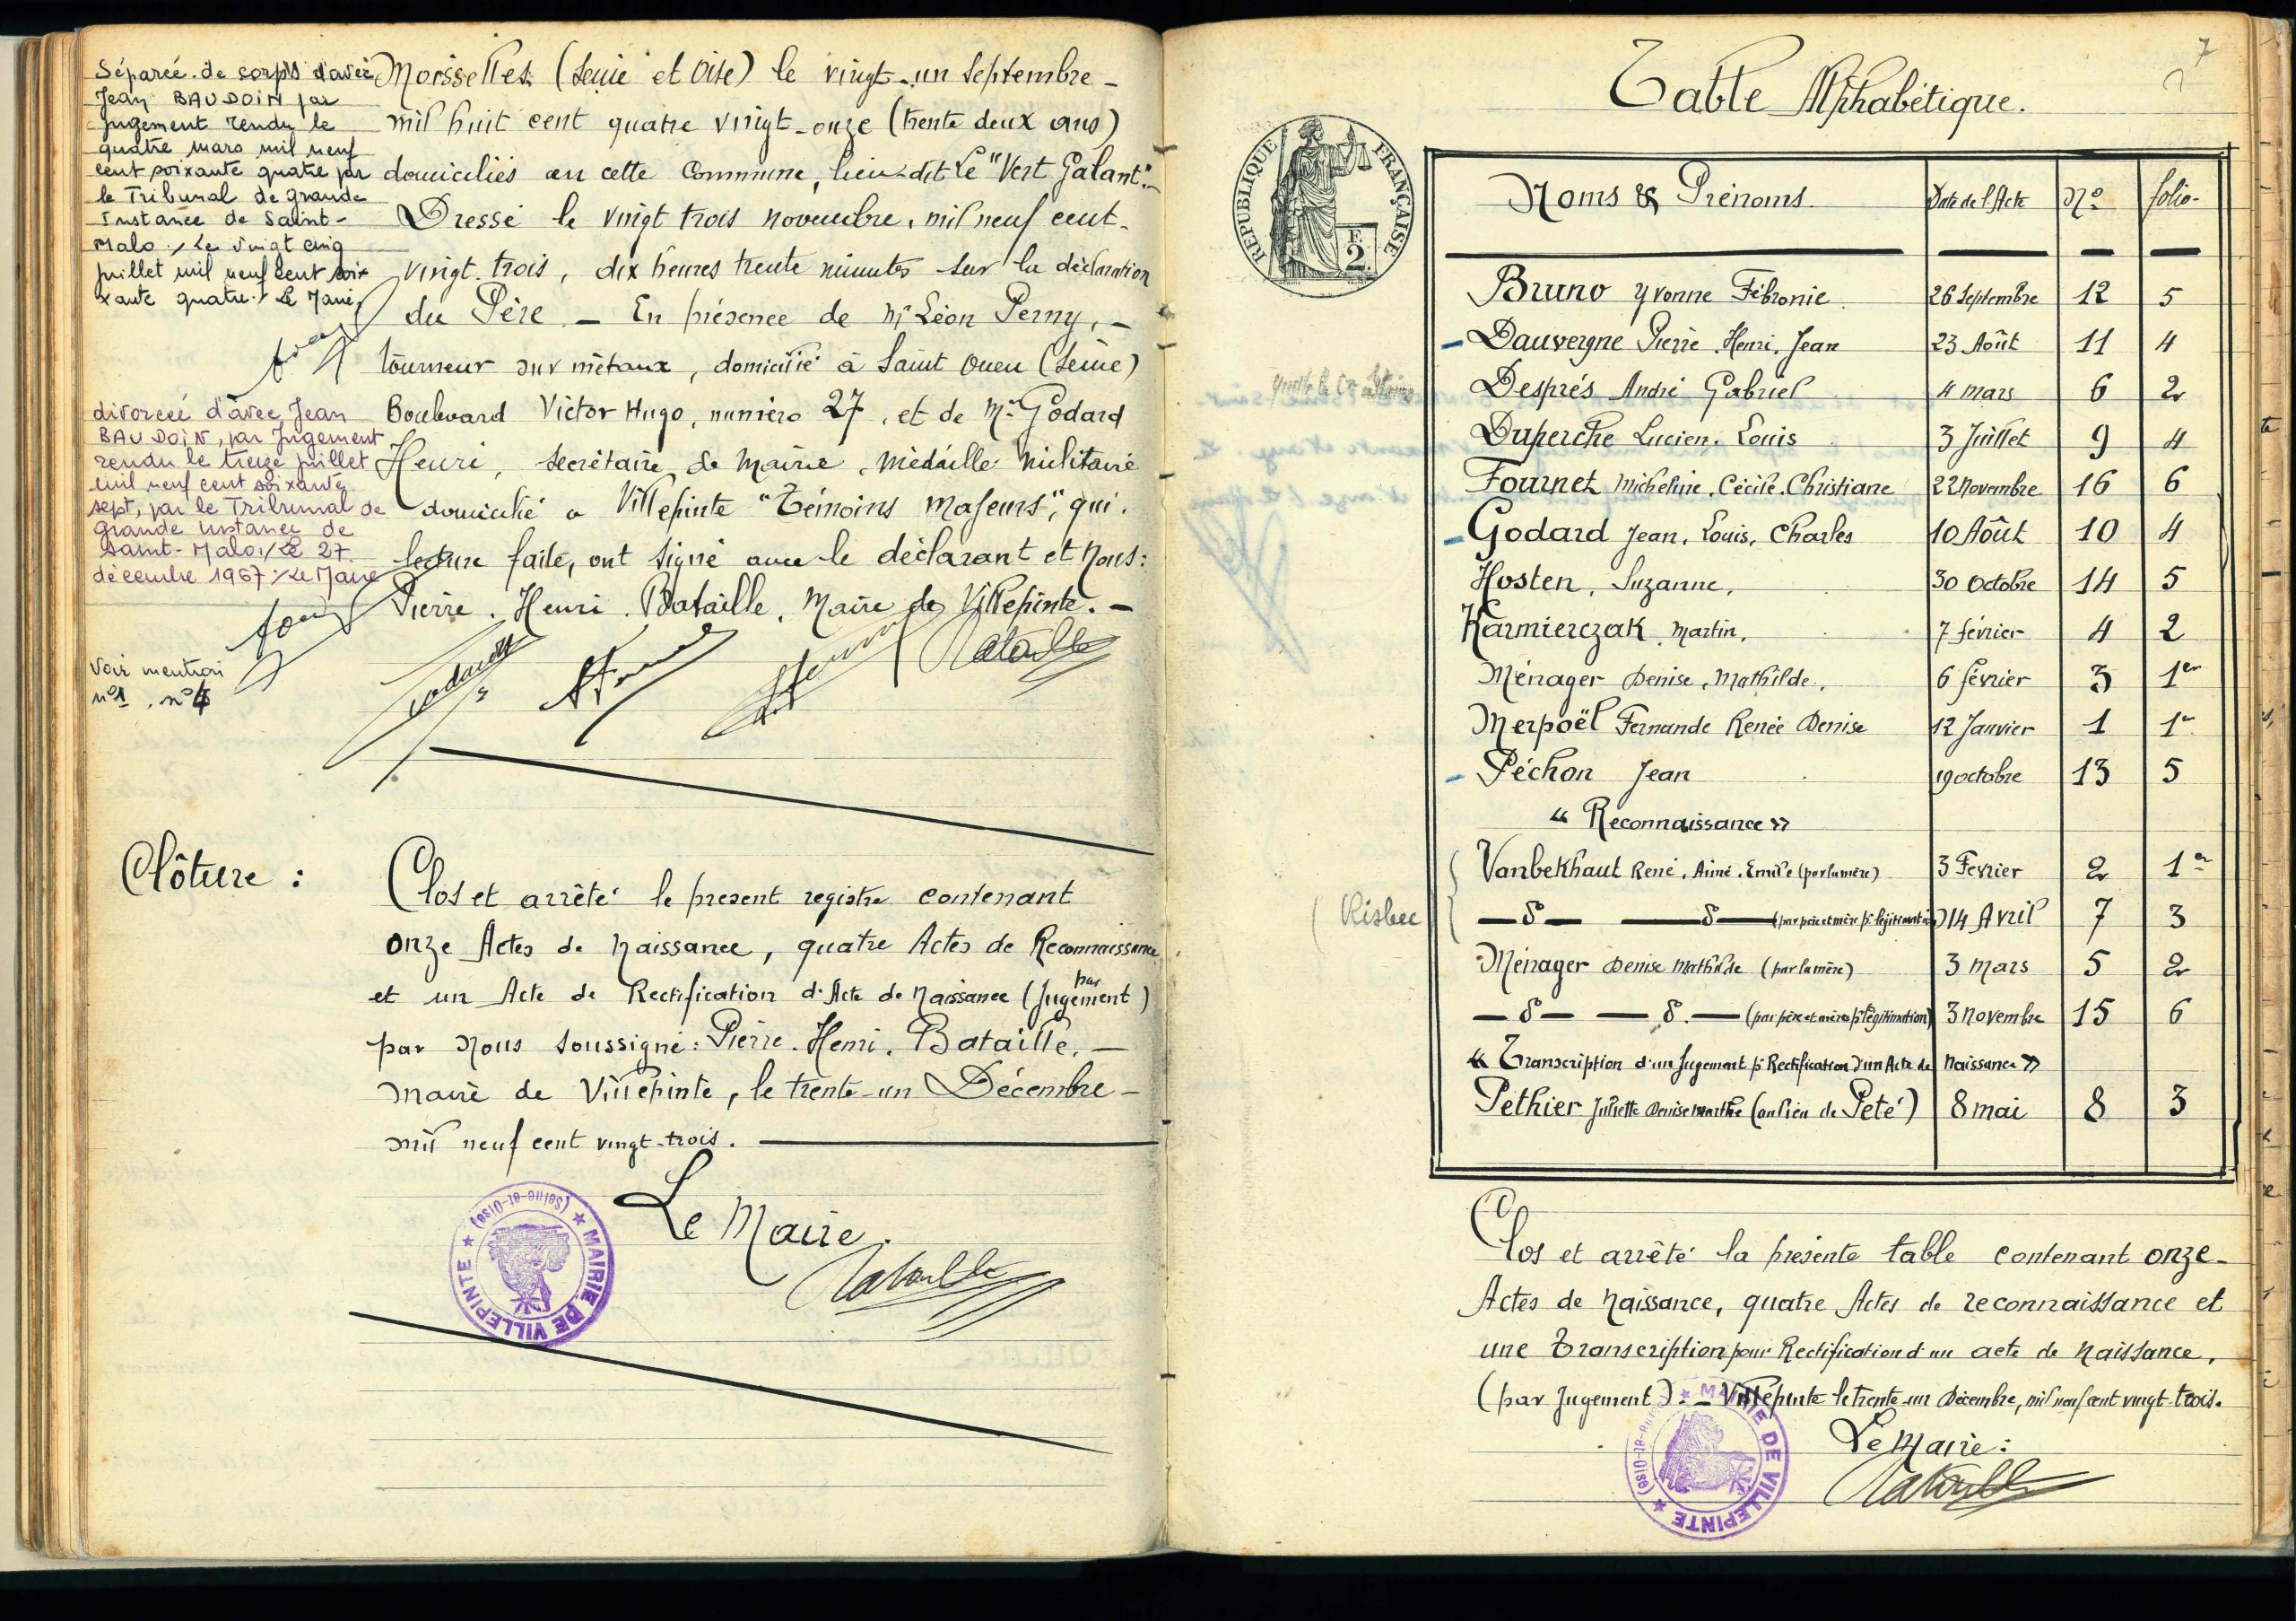 Séparée de corps d'avec
Jean BAUDOIN par
jugement rendu le
quatre mars mil neuf
cent soixante quatre par
le Tribunal de grande
Instance de Saint-
Malo ./. Le vingt cinq
juillet mil neuf cent soi-
xante quatre ./. Le Maire,
divorcée d'avec Jean
BAUDOIN, par Jugement
rendu le treize juillet
mil neuf cent soixante
sept, par le Tribunal de
Grande Instance de
Saint-Malo ./. Le 27
décembre 1967 ./. Le Maire
Voir mention
n°1, n°4
Moisselles (Seine et Oise) le vingt-un Septembre -
mil huit cent quatre vingt-onze (trente deux ans)
domiciliés en cette Commune, lieu-dit Le "Vert Galant".-
Dressé le vingt trois novembre, mil neuf cent-
vingt-trois, dix heures trente minutes sur la déclaration
du Père - En présence de Mr Léon Perny, -
tourneur sur métaux, domicilié à Saint Ouen (Seine)
Boulevard Victor Hugo, numéro 27, et de Mr Godard
Henri, secrétaire de Mairie, médaille militaire
domicilié à Villepinte "Témoins Majeurs", qui.
lecture faite, ont signé avec le déclarant et Nous:
Pierre. Henri. Bataille, Maire de Villepinte. -
Godard
Bataille
Clôture :
Clos et arrêté le présent registre contenant
onze Actes de Naissance, quatre Actes de Reconnaissance
et un Acte de Rectification d'Acte de Naissance (par Jugement)
par Nous soussigné: Pierre. Henri. Bataille. -
Maire de Villepinte, le trente-un Décembre -
mil neuf cent vingt-trois.
Le Maire.
Bataille
MAIRIE DE VILLEPINTE (Seine-et-Oise)
7
Table Alphabétique.
RÉPUBLIQUE FRANÇAISE
F.
2
Noms & Prénoms. Date de l'Acte N° folio-
Bruno Yvonne Fébronie. 26 Septembre 12 5
- Dauvergne Pierre. Henri. Jean 23 Août 11 4
Després André Gabriel 4 mars 6 2
Duperche Lucien. Louis 3 Juillet 9 4
Fournet Micheline. Cécile. Christiane 22 Novembre 16 6
- Godard Jean. Louis. Charles 10 Août 10 4
Hosten, Suzanne, 30 Octobre 14 5
Karmierczak, Martin, 7 février 4 2
Ménager Denise, Mathilde, 6 février 3 1er
Merpoël Fernande Renée Denise 12 Janvier 1 1er
- Péchon Jean 19 octobre 13 5
« Reconnaissance »
Vanbekhaut René. Aimé. Emile (par la mère) 3 Février 2 1er
(Risbec - d° - - d° - (par père et mère pr légitimation) 14 Avril 7 3
Ménager Denise Mathilde (par la mère) 3 Mars 5 2
- d° - - d° - (par père et mère pr légitimation) 3 Novembre 15 6
« Transcription d'un Jugement pr Rectification d'un Acte de Naissance »
Pethier Juliette Denise Marthe (au lieu de Peté) 8 mai 8 3
Clos et arrêté la présente table contenant onze-
Actes de Naissance, quatre Actes de reconnaissance et
une Transcription pour Rectification d'un acte de Naissance,
(par Jugement). - Villepinte le trente-un Décembre, mil neuf cent vingt-trois.
Le Maire:
Bataille
MAIRIE DE VILLEPINTE (Seine-et-Oise)